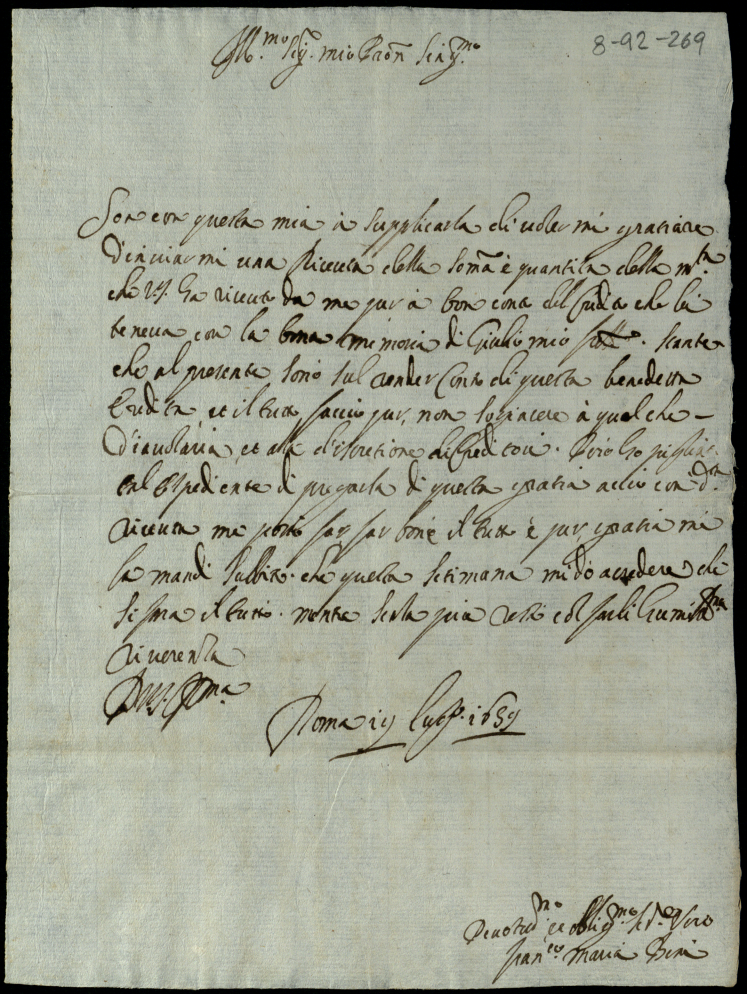 Ill.mo Sig. mio Pron Sing.mo
8-92-269
Son con questa mia à supplicarla di voler mi gratiare
d'inviarmi una Riceuta della soma è quantita della m.ta
che V.S. ha riceuto da me pur à bon conto del Credito che lei
teneva con la bona memoria di Giulio mio stante
che al presente sono sul render Conto di questa benedetta
Eredita et il tutto faccio pur, non sogiacere à qualche
et alla discretione de Creditori. Però ho
tal espediente di pregarla di questa gratia acciò con d.a
riceuta me possi far far bone il tutto è pur gratia mi
la mandi subbito. che questa setimana mi do a credere che
si il tutto. mentre resto col farli humil.ma
riverenza
D V.S. Ill.ma
Roma 19 Lug.o 1659
Devotiss.mo et oblig.mo Se.re Vero
Fran.co Maria Bini